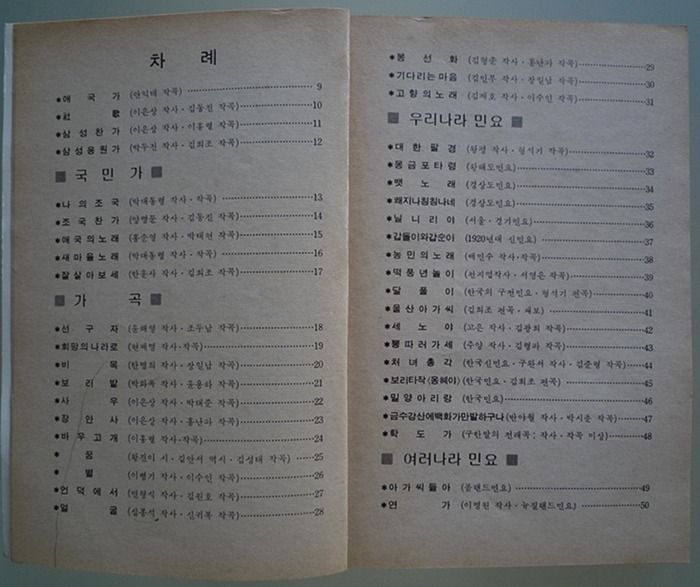 차 례
*애 국 가 (안익태 작곡) 9
*社 歌 (이은상 작사·김동진 작곡) 10
*삼성찬가 (이은상 작사·이흥렬 작곡) 11
*삼성응원가 (박두진 작사·김희조 작곡) 12
■ 국 민 가 ■
*나의 조국 (박대통령 작사·작곡) 13
*조국찬가 (양명문 작사·김동진 작곡) 14
*애국의노래 (홍순영 작사·박태현 작곡) 15
*새마을노래 (박대통령 작사·작곡) 16
*잘살아보세 (한운사 작사·김희조 작곡) 17
■ 가 곡 ■
*선 구 자 (윤해영 작사·조두남 작곡) 18
*희망의나라로 (현제명 작사·작곡) 19
*비 목 (한명희 작사·장일남 작곡) 20
*보 리 밭 (박화목 작사·윤용하 작곡) 21
*사 우 (이은상 작사·박태준 작곡) 22
*장 안 사 (이은상 작사·홍난파 작곡) 23
*바우고개 (이흥렬 작사·작곡) 24
*꿈 (황진이 시·김안서 역사·김성태 작곡) 25
*별 (이병기 작사·이수인 작곡) 26
*언덕에서 (민형식 작사·김원호 작곡) 27
*얼 굴 (심봉석 작사·신귀복 작곡) 28
*봉 선 화 (김형준 작사·홍난파 작곡) 29
*기다리는마음 (김민부 작사·장일남 작곡) 30
*고향의노래 (김재호 작사·이수인 작곡) 31
■ 우리나라 민요 ■
*대한팔경 (왕평 작사·형석기 작곡) 32
*몽금포타령 (황해도민요) 33
*뱃 노 래 (경상도민요) 34
*쾌지나칭칭나네 (경상도민요) 35
*닐니리야 (서울·경기민요) 36
*갑돌이와갑순이 (1920년대 신민요) 37
*농민의노래 (배민수 작사·작곡) 38
*떡풍년놀이 (전지엽작사·서영은 작곡) 39
*달 풀 이 (한국의 구전민요·형석기 편곡) 40
*울산아가씨 (김희조 편곡·채보) 41
*세 노 야 (고은 작사·김광희 작곡) 42
*뽕따러가세 (수양 작사·김형파 작곡) 43
*처녀총각 (한국신민요·구완서 작사·김준형 작곡) 44
*보리타작<옹헤야> (한국민요·김희조 편곡) 45
*밀양아리랑 (한국민요) 46
*금수강산에백화가만발하구나 (반야월 작사·박시춘 작곡) 47
*학 도 가 (구한말의 전래곡: 작사·작곡 미상) 48
■ 여러나라 민요 ■
*아가씨들아 (폴랜드민요) 49
*연 가 (이명원 작사·뉴질랜드민요) 50